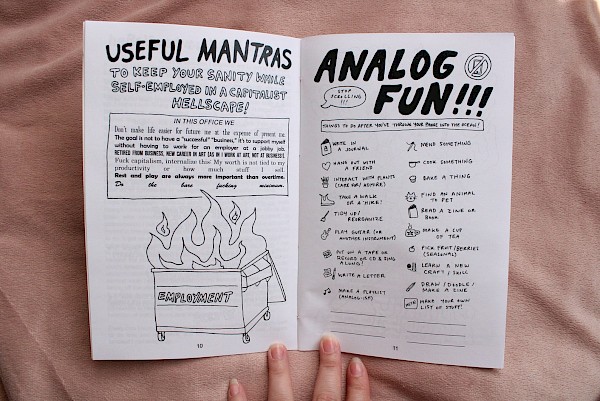 USEFUL MANTRAS
TO KEEP YOUR SANITY WHILE
SELF-EMPLOYED IN A CAPITALIST
HELLSCAPE!
IN THIS OFFICE WE
Don't make life easier for future me at the expense of present me.
The goal is not to have a "successful" "business," it's to support myself
without having to work for an employer at a jobby job.
RETIRED FROM BUSINESS, NEW CAREER IN ART (AS IN I WORK AT ART, NOT AT BUSINESS).
Fuck capitalism, internalize this! My worth is not tied to my
productivity or how much stuff I sell.
Rest and play are always more important than overtime.
Do the bare fucking minimum.
EMPLOYMENT
10
ANALOG
FUN!!!
STOP
SCROLLING
!!!
THINGS TO DO AFTER YOU'VE THROWN YOUR PHONE INTO THE OCEAN!
WRITE IN
A JOURNAL
HANG OUT WITH
A FRIEND
INTERACT WITH PLANTS
(CARE FOR/ADMIRE)
TAKE A WALK
OR A HIKE!
TIDY UP/
REORGANIZE
PLAY GUITAR (OR
ANOTHER INSTRUMENT)
PUT ON A TAPE OR
RECORD OR CD & SING
ALONG!
WRITE A LETTER
MAKE A PLAYLIST
(ANALOG-ISH)
MEND SOMETHING
COOK SOMETHING
BAKE A THING
FIND AN ANIMAL
TO PET
READ A ZINE OR
BOOK
MAKE A CUP
OF TEA
PICK FRUIT/BERRIES
(SEASONAL)
LEARN A NEW
CRAFT/SKILL
DRAW/DOODLE/
MAKE A ZINE
MAKE YOUR OWN
LIST OF STUFF!
11